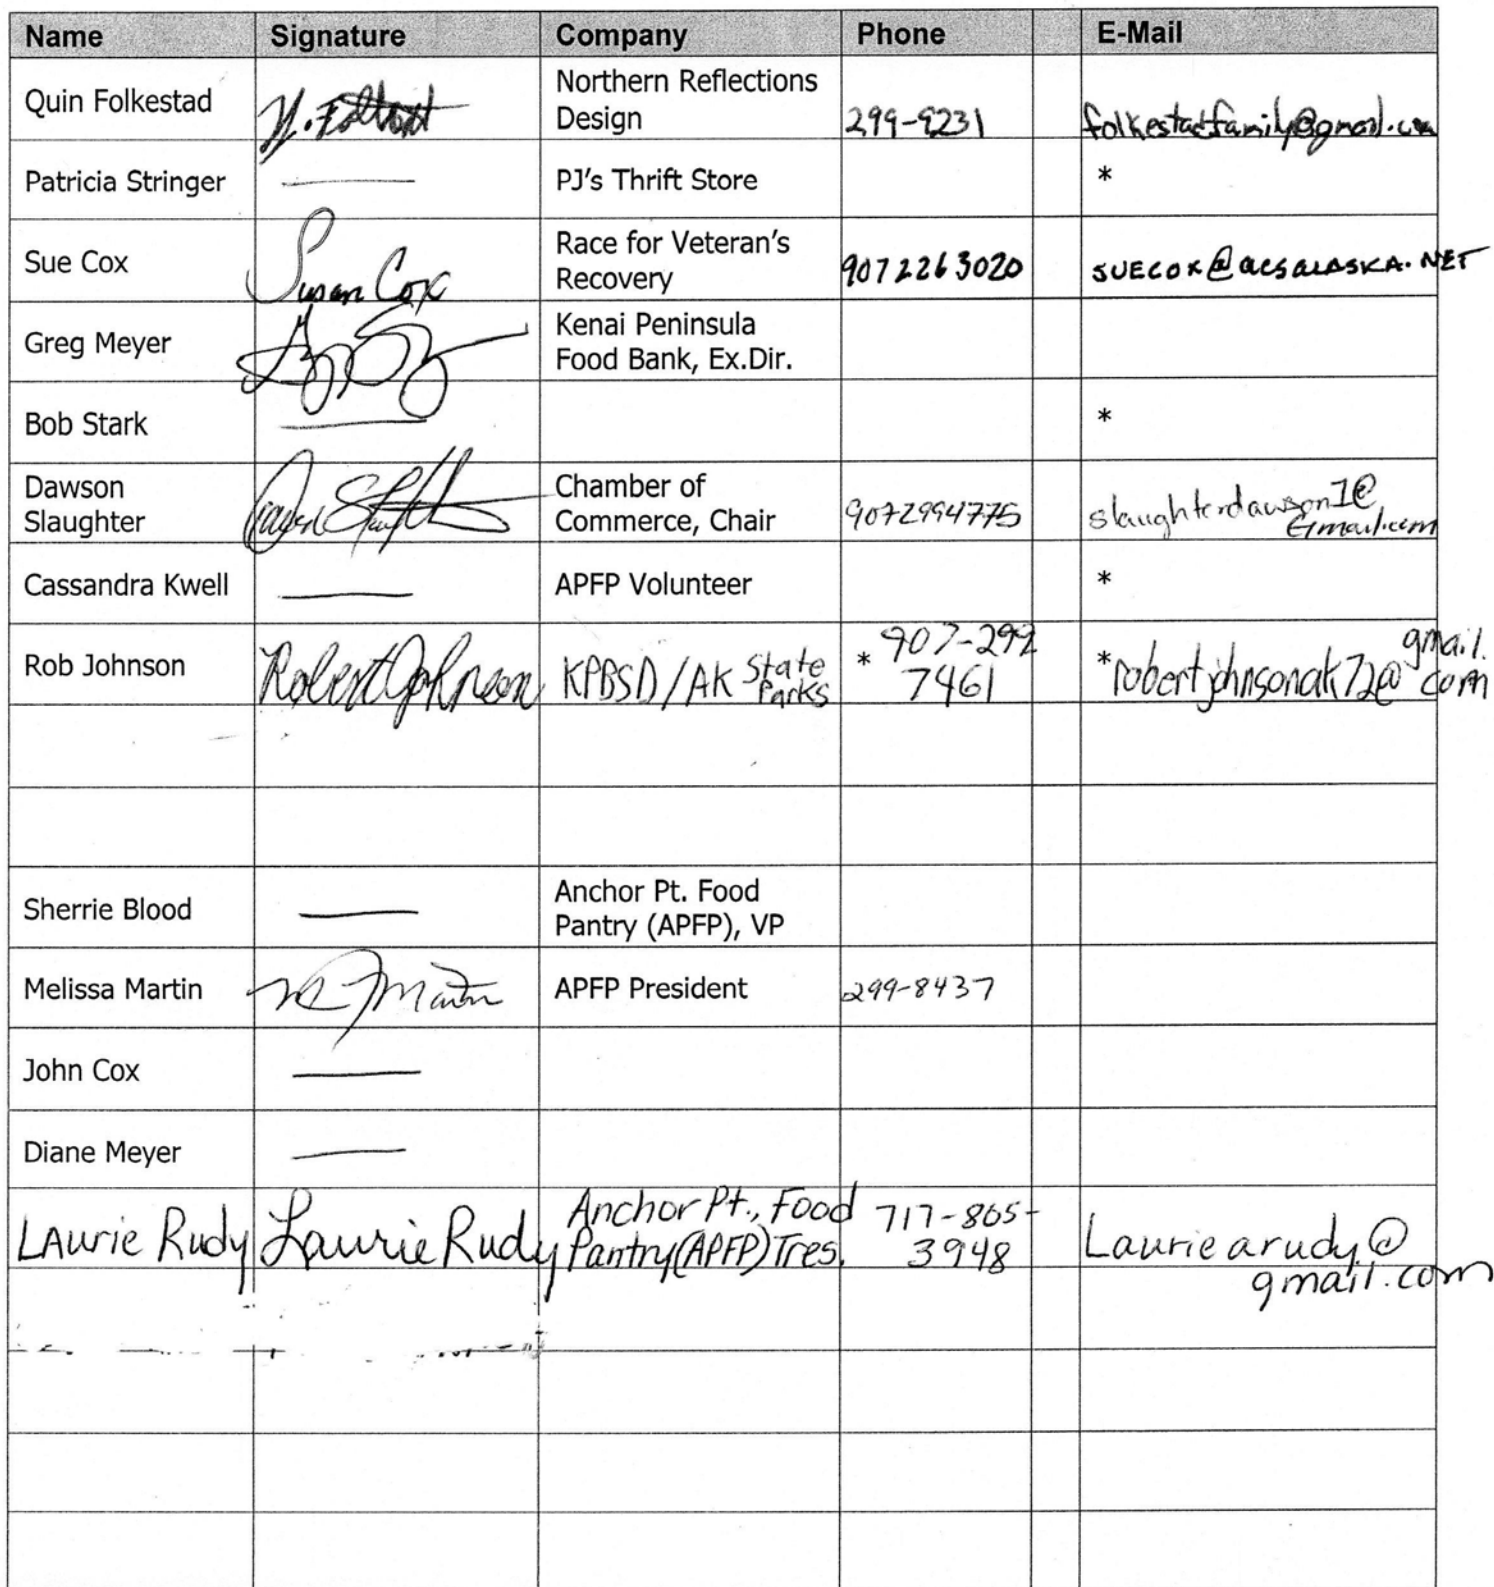 Name Signature Company Phone E-Mail
Quin Folkestad Northern Reflections
Design 299-9231 folkestadfamily@gmail.com
Patricia Stringer — PJ's Thrift Store *
Sue Cox Susan Cox Race for Veteran's
Recovery 9072263020 SUECOX@ACSALASKA.NET
Greg Meyer Kenai Peninsula
Food Bank, Ex.Dir.
Bob Stark — *
Dawson
Slaughter Chamber of
Commerce, Chair 9072994775 slaughterdawson1@
Gmail.com
Cassandra Kwell — APFP Volunteer *
Rob Johnson Robert Johnson KPBSD/AK State
Parks * 907-299
7461 *robertjohnsonak72@gmail.
com
Sherrie Blood — Anchor Pt. Food
Pantry (APFP), VP
Melissa Martin M Martin APFP President 299-8437
John Cox —
Diane Meyer —
LAurie Rudy Laurie Rudy Anchor Pt., Food
Pantry(APFP)Tres. 717-865-
3948 Lauriearudy@
gmail.com